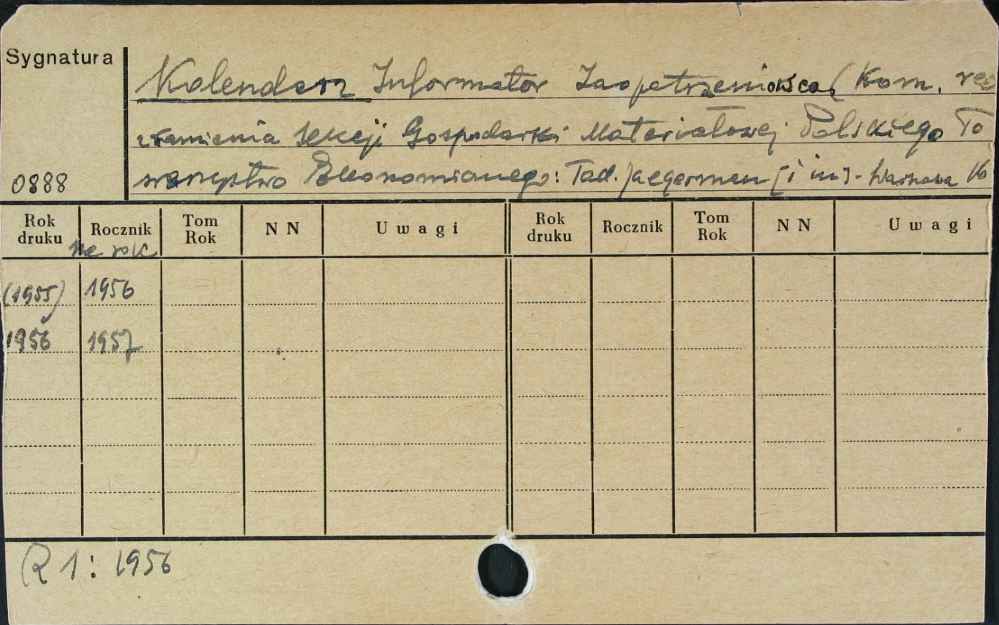 Sygnatura
Kalendarz Informator Zaopatrzeniowca (Kom. red
z ramienia Sekcji Gospodarki Materiałowej Polskiego To
warzystwa Ekonomicznego: Tad. Jaegerman [i in] - Warszawa
0888
Rok druku Rocznik Tom Rok NN Uwagi Rok druku Rocznik Tom Rok NN Uwagi
na rok
(1955) 1956
1956 1957
R 1: 1956